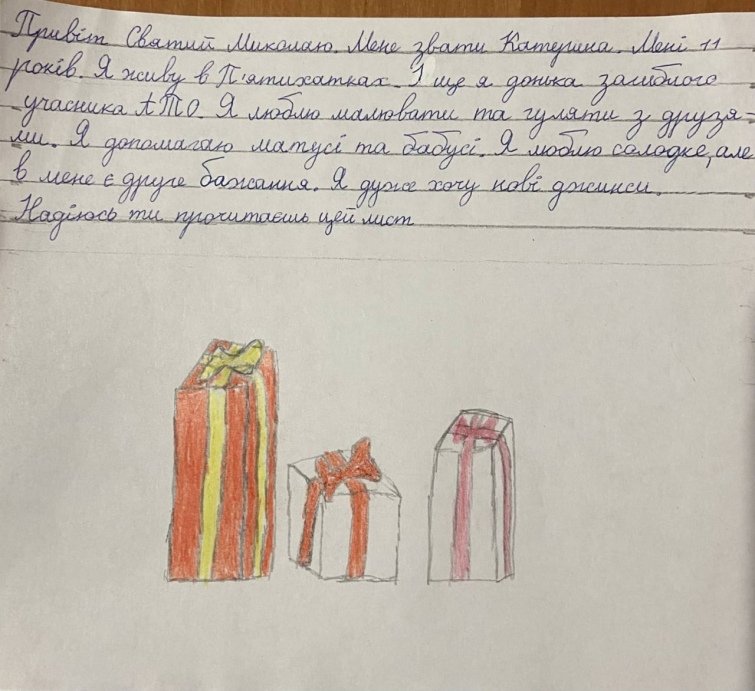 Привіт Святий Миколаю. Мене звати Катерина. Мені 11
років. Я живу в П'ятихатках. І ще я донька загиблого
учасника АТО. Я люблю малювати та гуляти з друзя=
ми. Я допомагаю матусі та бабусі. Я люблю солодке, але
в мене є друге бажання. Я дуже хочу нові джинси.
Надіюсь ти прочитаєшь цей лист